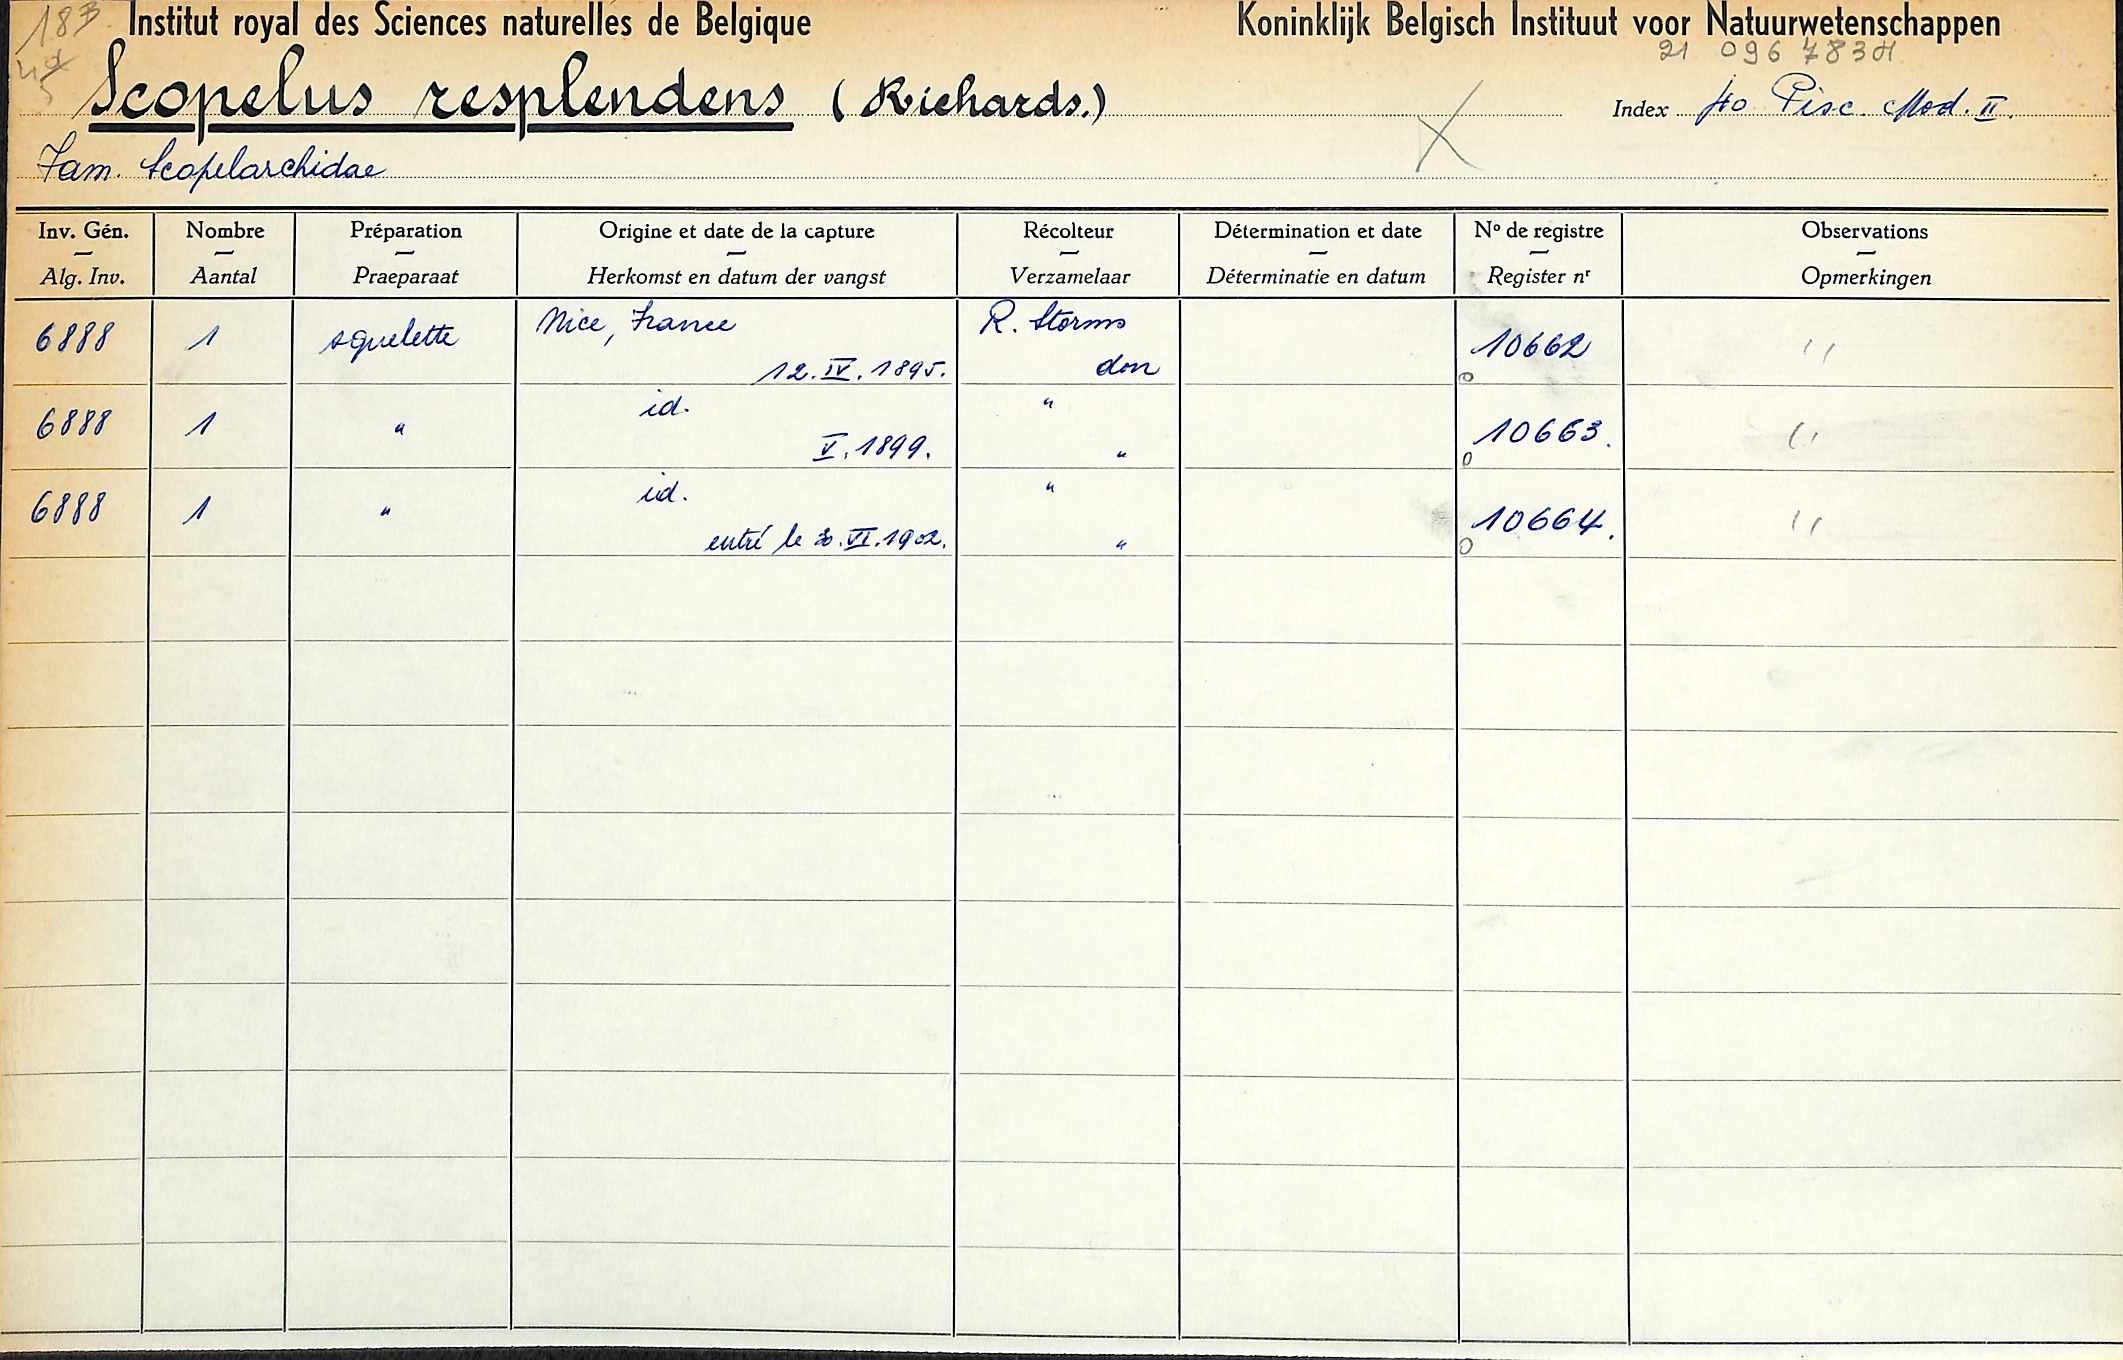 18B Institut royal des Sciences naturelles de Belgique Koninklijk Belgisch Instituut voor Natuurwetenschappen
21 096 7834
Scopelus resplendens (Richards.) Index 40 Pisc. Mod. II.
Fam. Scopelarchidae
Inv. Gén. Nombre Préparation Origine et date de la capture Récolteur Détermination et date Nº de registre Observations
Alg. Inv. Aantal Praeparaat Herkomst en datum der vangst Verzamelaar Déterminatie en datum Register nr Opmerkingen
6888 1 squelette Nice, France R. Storms 10662 ''
12. IV. 1895. don
6888 1 " id. " 10663. ''
V. 1899. "
6888 1 " id. " 10664. ''
entré le 30. VI. 1902. "